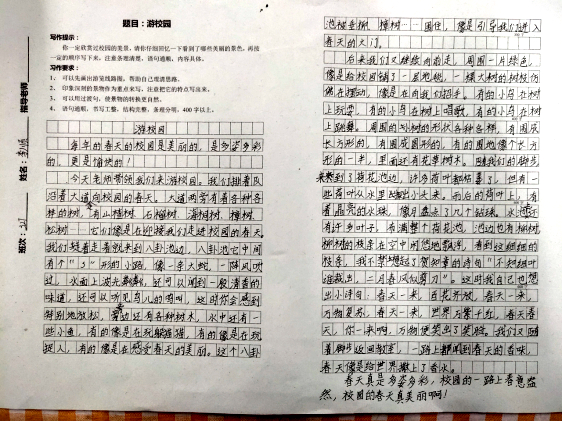 题目：游校园
写作提示：
你一定欣赏过校园的美景，请你仔细回忆一下看到了哪些美丽的景色，再按
一定的顺序写下来。注意条理清楚，语句通顺，内容具体。
写作要求：
1、 可以先画出游览线路图，帮助自己理清思路。
2、 印象深刻的景物作为重点来写，注意把它的特点写出来。
3、 可以用过渡句，使景物的转换更自然。
4、 语句通顺，书写工整，结构完整，条理分明，400字以上。
指导老师
姓名：
班次：
游校园
每年的春天的校园是美丽的，是多姿多彩
的，更是愉快的！
今天老师带领我们来游校园。我们排着队
沿着大道向校园的春天。大道两旁有着各种各
样的树，有山楂树，石榴树，海桐树，樟树，
松树…它们像是在迎接我们走进校园的春天
我们接着走着就来到八卦池边，八卦池它中间
有个"S"形的小路，像一条大蛇，一阵风吹
过，水面上波光粼粼，还可以闻到一股清香的
味道，还可以听见鸟儿的鸣叫，这时你会感到
特别地放松，旁边还有各种树木，水中还有一
些小鱼，有的像是在玩躲猫猫，有的像是在玩
捉人，有的像是在感受春天的美丽。这个八卦
池被垂柳，樟树…围住，像是引导我们进入
春天的大门。
后来我们又继续向前走，周围一片绿色，
像是给校园铺了一层地毯，一棵大树的树枝仿
佛在摆动，像是在向我们招手。有的小鸟在树
上玩耍，有的小鸟在树上唱歌，有的小鸟在树
上跳舞。周围的小树的形状各种各样，有围成
长方形的，有围成圆形的，有的围地像个长方
形的一半，里面还有花草树木。随我们的脚步
来到了荷花池边，许多荷叶都枯萎了，但有一
些荷叶从水里冒出小头来。而后的荷叶上，有
着晶亮的水珠，像月盘上了几个钻球。水池还
有许多叶子，布满整个荷花池。池边也有柳树
柳树的枝条在空中悠悠飘浮，看到这细细的
枝条，我不禁想起了贺知章的诗句"不知细叶
谁裁出，二月春风似剪刀"。这时我自己也想
出小诗句，春天一来，百花开放，春天一来，
万物复苏，春天一来，世界万紫千红，春天春
天，你一来啊，万物便笑出了笑脸。我们又随
着脚步返回教室，一路上都闻到春天的香味，
春天像是给世界撒上了香水。
春天真是多姿多彩，校园的一路上春意盎
然，校园的春天真美丽啊！